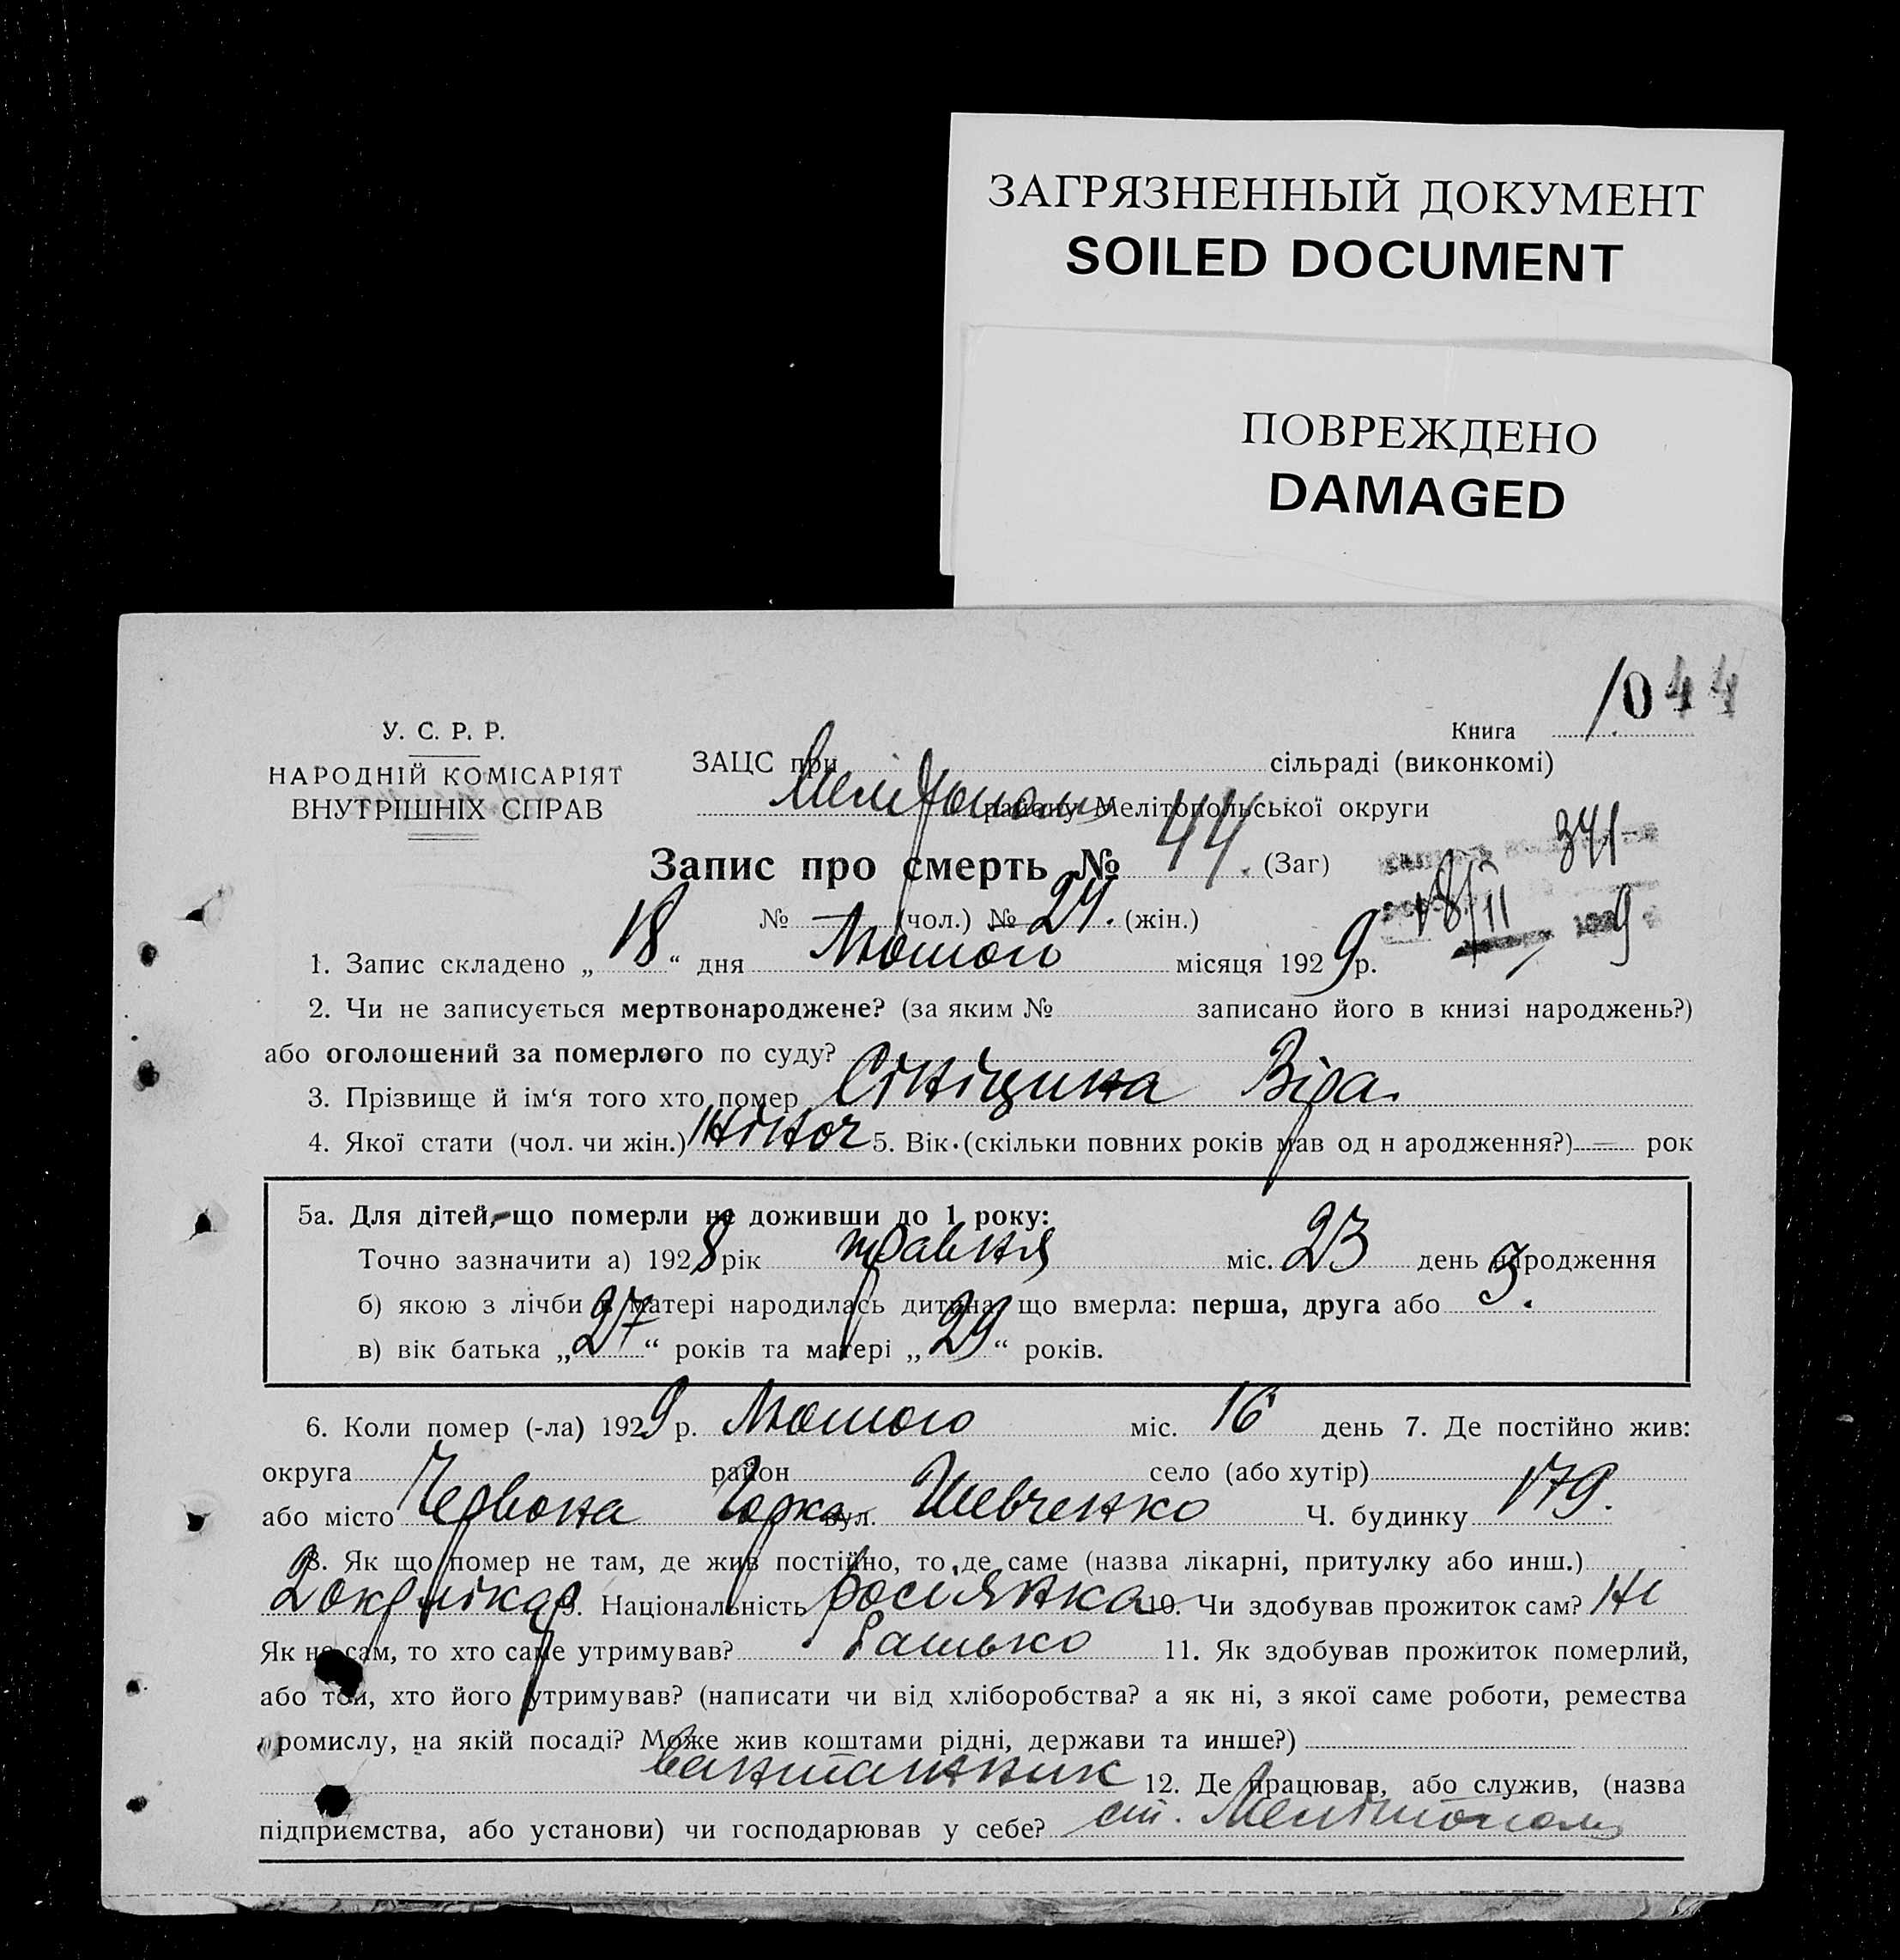 ЗАГРЯЗНЕННЫЙ ДОКУМЕНТ
SOILED DOCUMENT
ПОВРЕЖДЕНО
DAMAGED
1044
У. С. Р. Р.
НАРОДНІЙ КОМІСАРІЯТ
ВНУТРІШНІХ СПРАВ
Книга
ЗАЦС при сільраді (виконкомі)
Мелітополь району Мелітопольської округи
Запис про смерть № 44. (Заг)
341
18/II 1929
№ — (чол.) № 24. (жін.)
1. Запис складено „18“ дня Лютого місяця 1929 р.
2. Чи не записується мертвонароджене? (за яким № записано його в книзі народжень?)
або оголошений за померлого по суду?
3. Прізвище й ім‘я того хто помер Сініцина Віра
4. Якої стати (чол. чи жін.) жіноч 5. Вік (скільки повних років мав од н ародження?) — рок
5а. Для дітей, що померли не доживши до 1 року:
Точно зазначити а) 1928 рік травня міс. 23 день народження
б) якою з лічби в матері народилась дитина, що вмерла: перша, друга або 3.
в) вік батька „27“ років та матері „29“ років.
6. Коли помер (-ла) 1929 р. Лютого міс. 16 день 7. Де постійно жив:
округа район село (або хутір)
або місто Червона Горка вул. Шевченко Ч. будинку 179.
8. Як що помер не там, де жив постійно, то де саме (назва лікарні, притулку або инш.)
2 окрлікар 9. Національність росіянка 10. Чи здобував прожиток сам? Ні
Як не сам, то хто саме утримував? батько 11. Як здобував прожиток померлий,
або той, хто його утримував? (написати чи від хліборобства? а як ні, з якої саме роботи, ремества
промислу, на якій посаді? Може жив коштами рідні, держави та инше?)
вантажник 12. Де працював, або служив, (назва
підприємства, або установи) чи господарював у себе? ст. Мелітополь